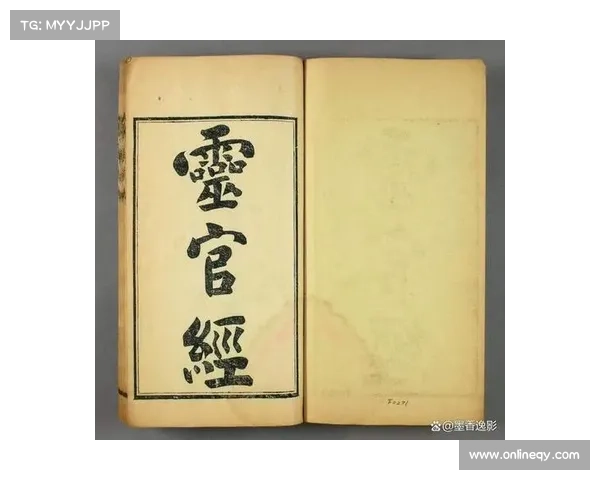 TG: MYYJJPP
靈
官
經
@墨香逸影
www.onlineqy.com